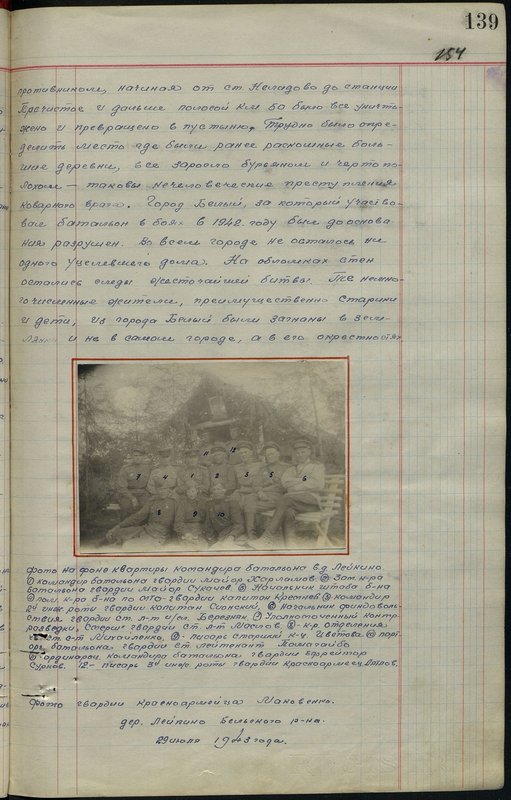 139
154
противником, начиная от ст. Нелидово до станции
Пречистое и дальше полосой км 60 было все уничто-
жено и превращено в пустыню. Трудно было опре-
делить место где были ранее раскошные боль-
шие деревни, все заросло бурьяном и чертопо-
лохом — таковы нечеловеческие преступления
коварного врага. Город Белый, за который участво-
вал батальон в боях в 1942 году был до основа-
ния разрушен. Во всем городе не осталось ни
одного уцелевшего дома. На обломках стен
остались следы жесточайшей битвы. Те немно-
гочисленные жители, преимущественно старики
и дети, из города Белый были загнаны в зем-
лянки и не в самом городе, а в его окрестностях
11 12
7 4 1 2 3 5 6
8 9 10
Фото на фоне квартиры командира батальона в д. Лейкино.
1 командир батальона гвардии майор Харламов 2 Зам. к-ра
батальона гвардии майор Сукачев 3 Начальник штаба б-на
пом. к-ра б-на по гвардии капитан 5 командир
2й инж. роты гвардии капитан 6 начальник
ствия гвардии ст. л-т и/сл. Березняк. 7 Уполномоченный контр-
разведки, Смерш гвардии ст. л-т Маслов 8 к-р отделения,
Михайленко, 9 писарь старший Цветова 10 парт-
орг батальона гвардии ст. лейтенант
11 ординарец командира батальона гвардии ефрейтор
Сурков. 12- писарь 3й инж. роты гвардии Красноармеец
Фото гвардии красноармейца Маковенко.
дер. Лейкино Бельского р-на.
29 июля 1943 года.